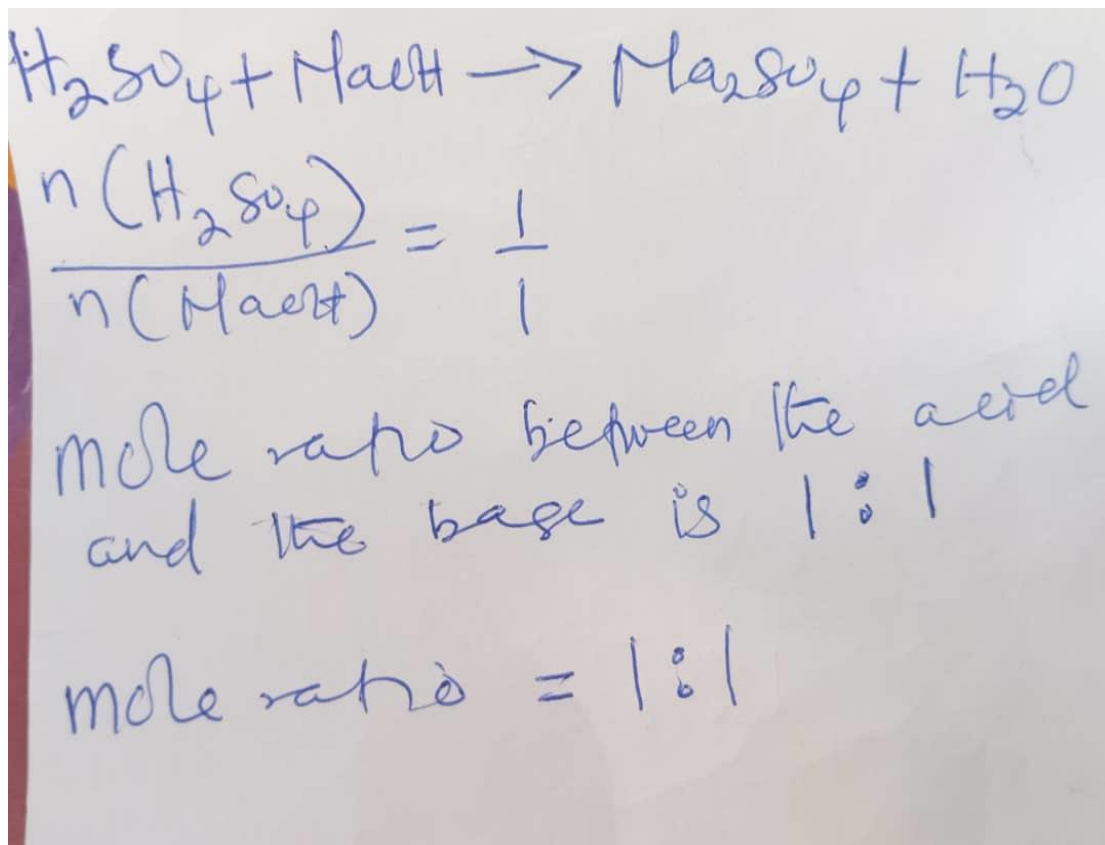 H₂SO₄ + NaOH → Na₂SO₄ + H₂O
n(H₂SO₄) / n(NaOH) = 1 / 1
mole ratio between the acid
and the base is 1 : 1
mole ratio = 1 : 1